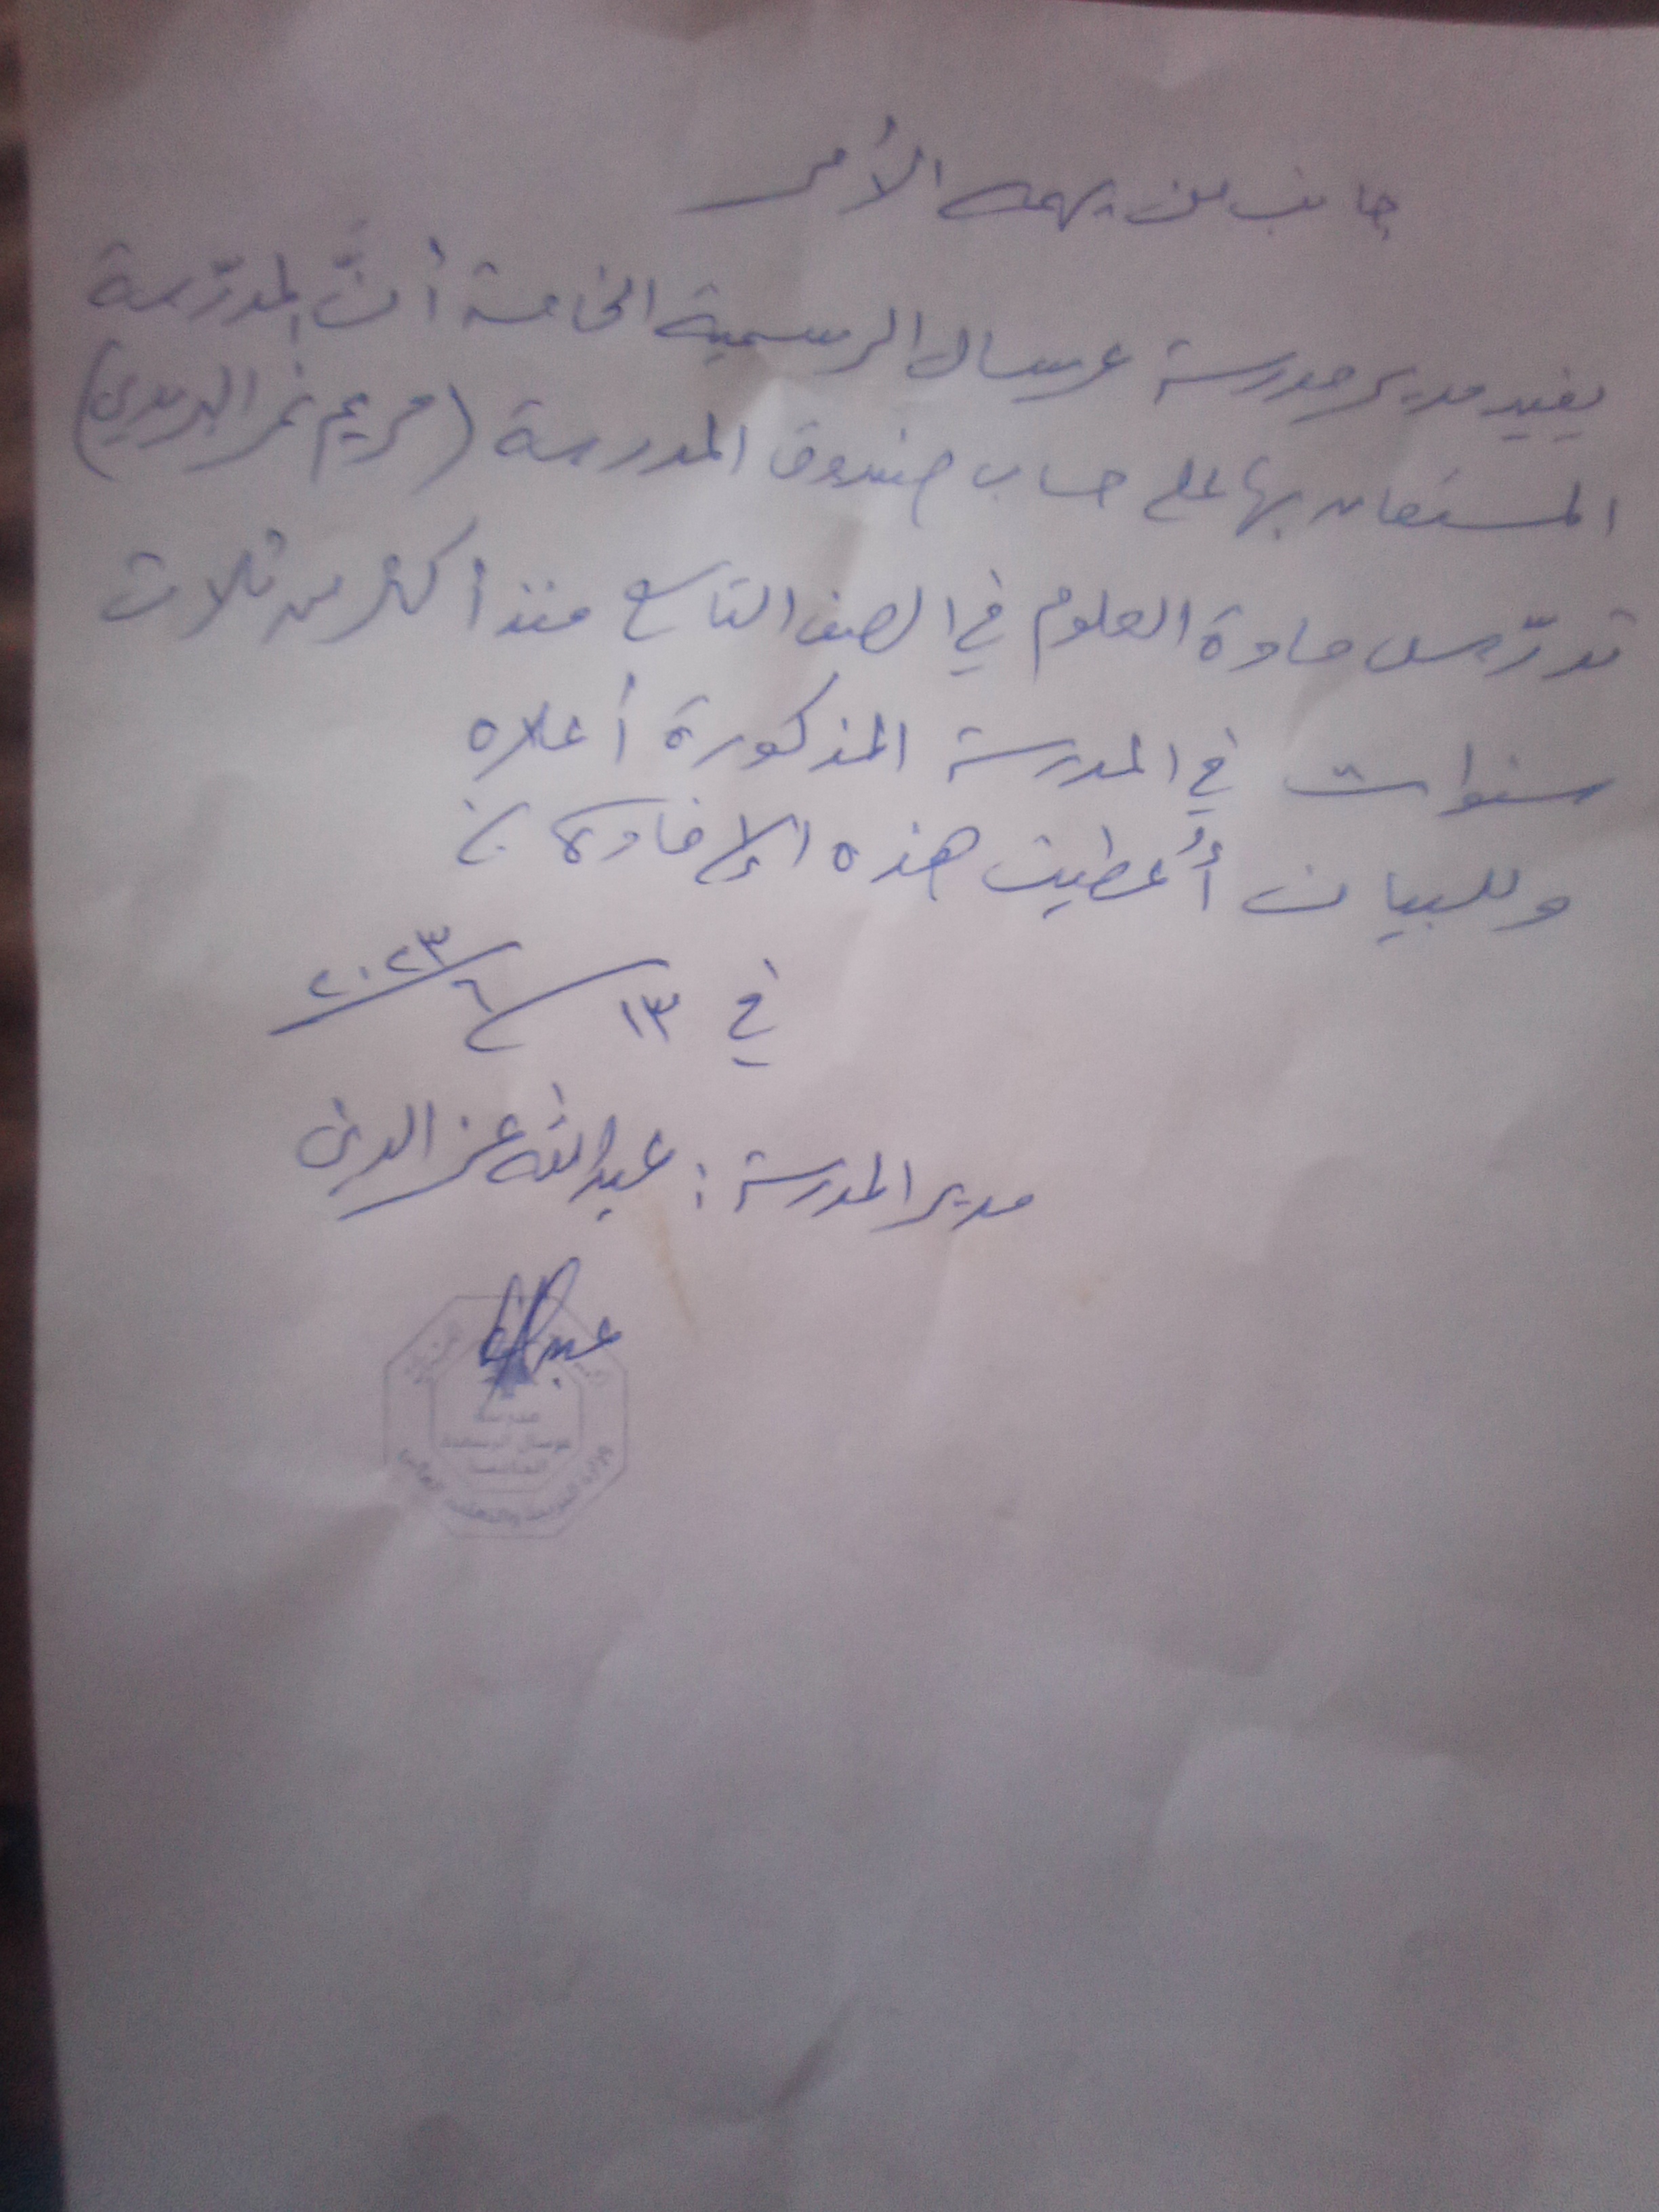 جانب من يهمه الأمر
يفيد مدير مدرسة عرسال الرسمية الخامسة أنّ المدرّسة
المستعان بها على حساب صندوق المدرسة (مريم نمر البريدي)
تدرّس مادة العلوم في الصف التاسع منذ أكثر من ثلاث
سنوات في المدرسة المذكورة أعلاه
وللبيان أُعطيت هذه الإفادة
في ١٣/٦/٢٠٢٣
مدير المدرسة : عبدالله عز الدين
مدرسة
عرسال الرسمية
الخامسة
وزارة التربية والتعليم العالي